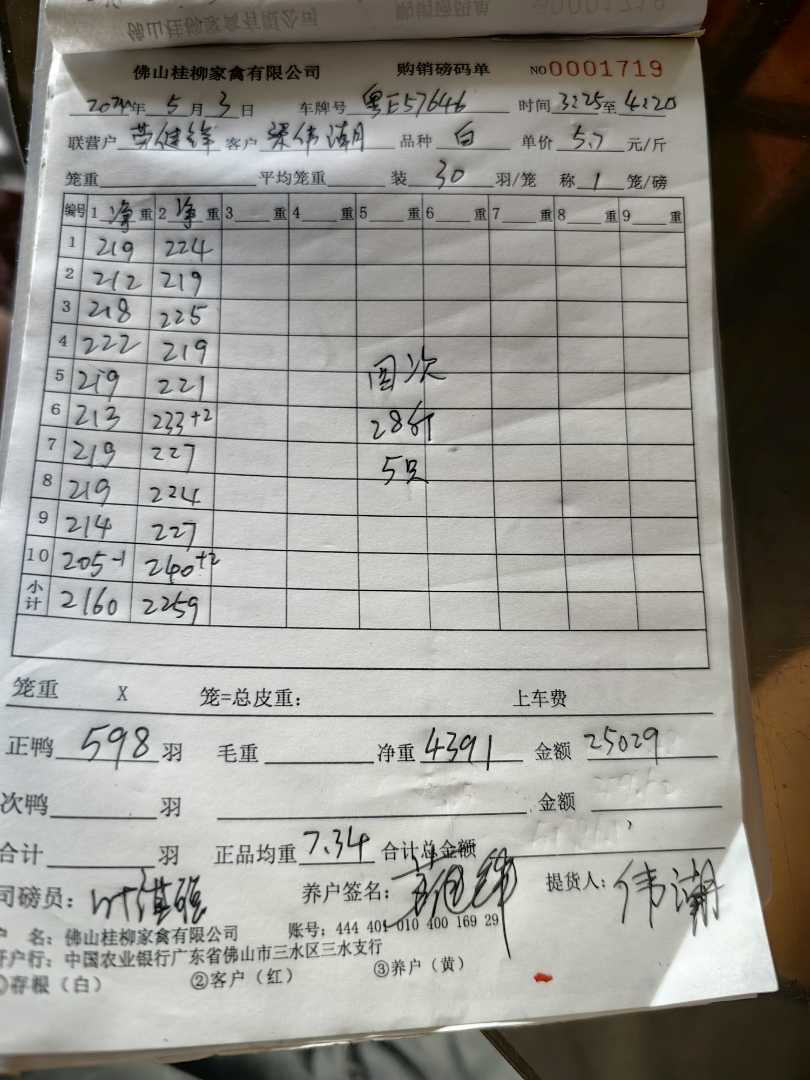 佛山桂柳家禽有限公司 购销磅码单 NO0001719
年 5 月 3 日 车牌号 粤E57646 时间 3:25 至 4:20
联营户 客户 梁伟潮 品种 白 单价 5.7 元/斤
笼重 平均笼重 装 30 羽/笼 称 1 笼/磅
编号 1 净 重 2 净 重 3 重 4 重 5 重 6 重 7 重 8 重 9 重
1 219 224
2 212 219
3 218 225
4 222 219
5 219 221
6 213 233+2
7 219 227
8 219 224
9 214 227
10 205-1 240+2
小计 2160 2259
回次
28斤
5只
笼重 X 笼=总皮重: 上车费
正鸭 598 羽 毛重 净重 4391 金额 25029
次鸭 羽 金额
合计 羽 正品均重 7.34 合计总金额
司磅员: 养户签名: 提货人: 伟潮
户 名: 佛山桂柳家禽有限公司 账号: 444 401 010 400 169 29
开户行: 中国农业银行广东省佛山市三水区三水支行
①存根（白） ②客户（红） ③养户（黄）